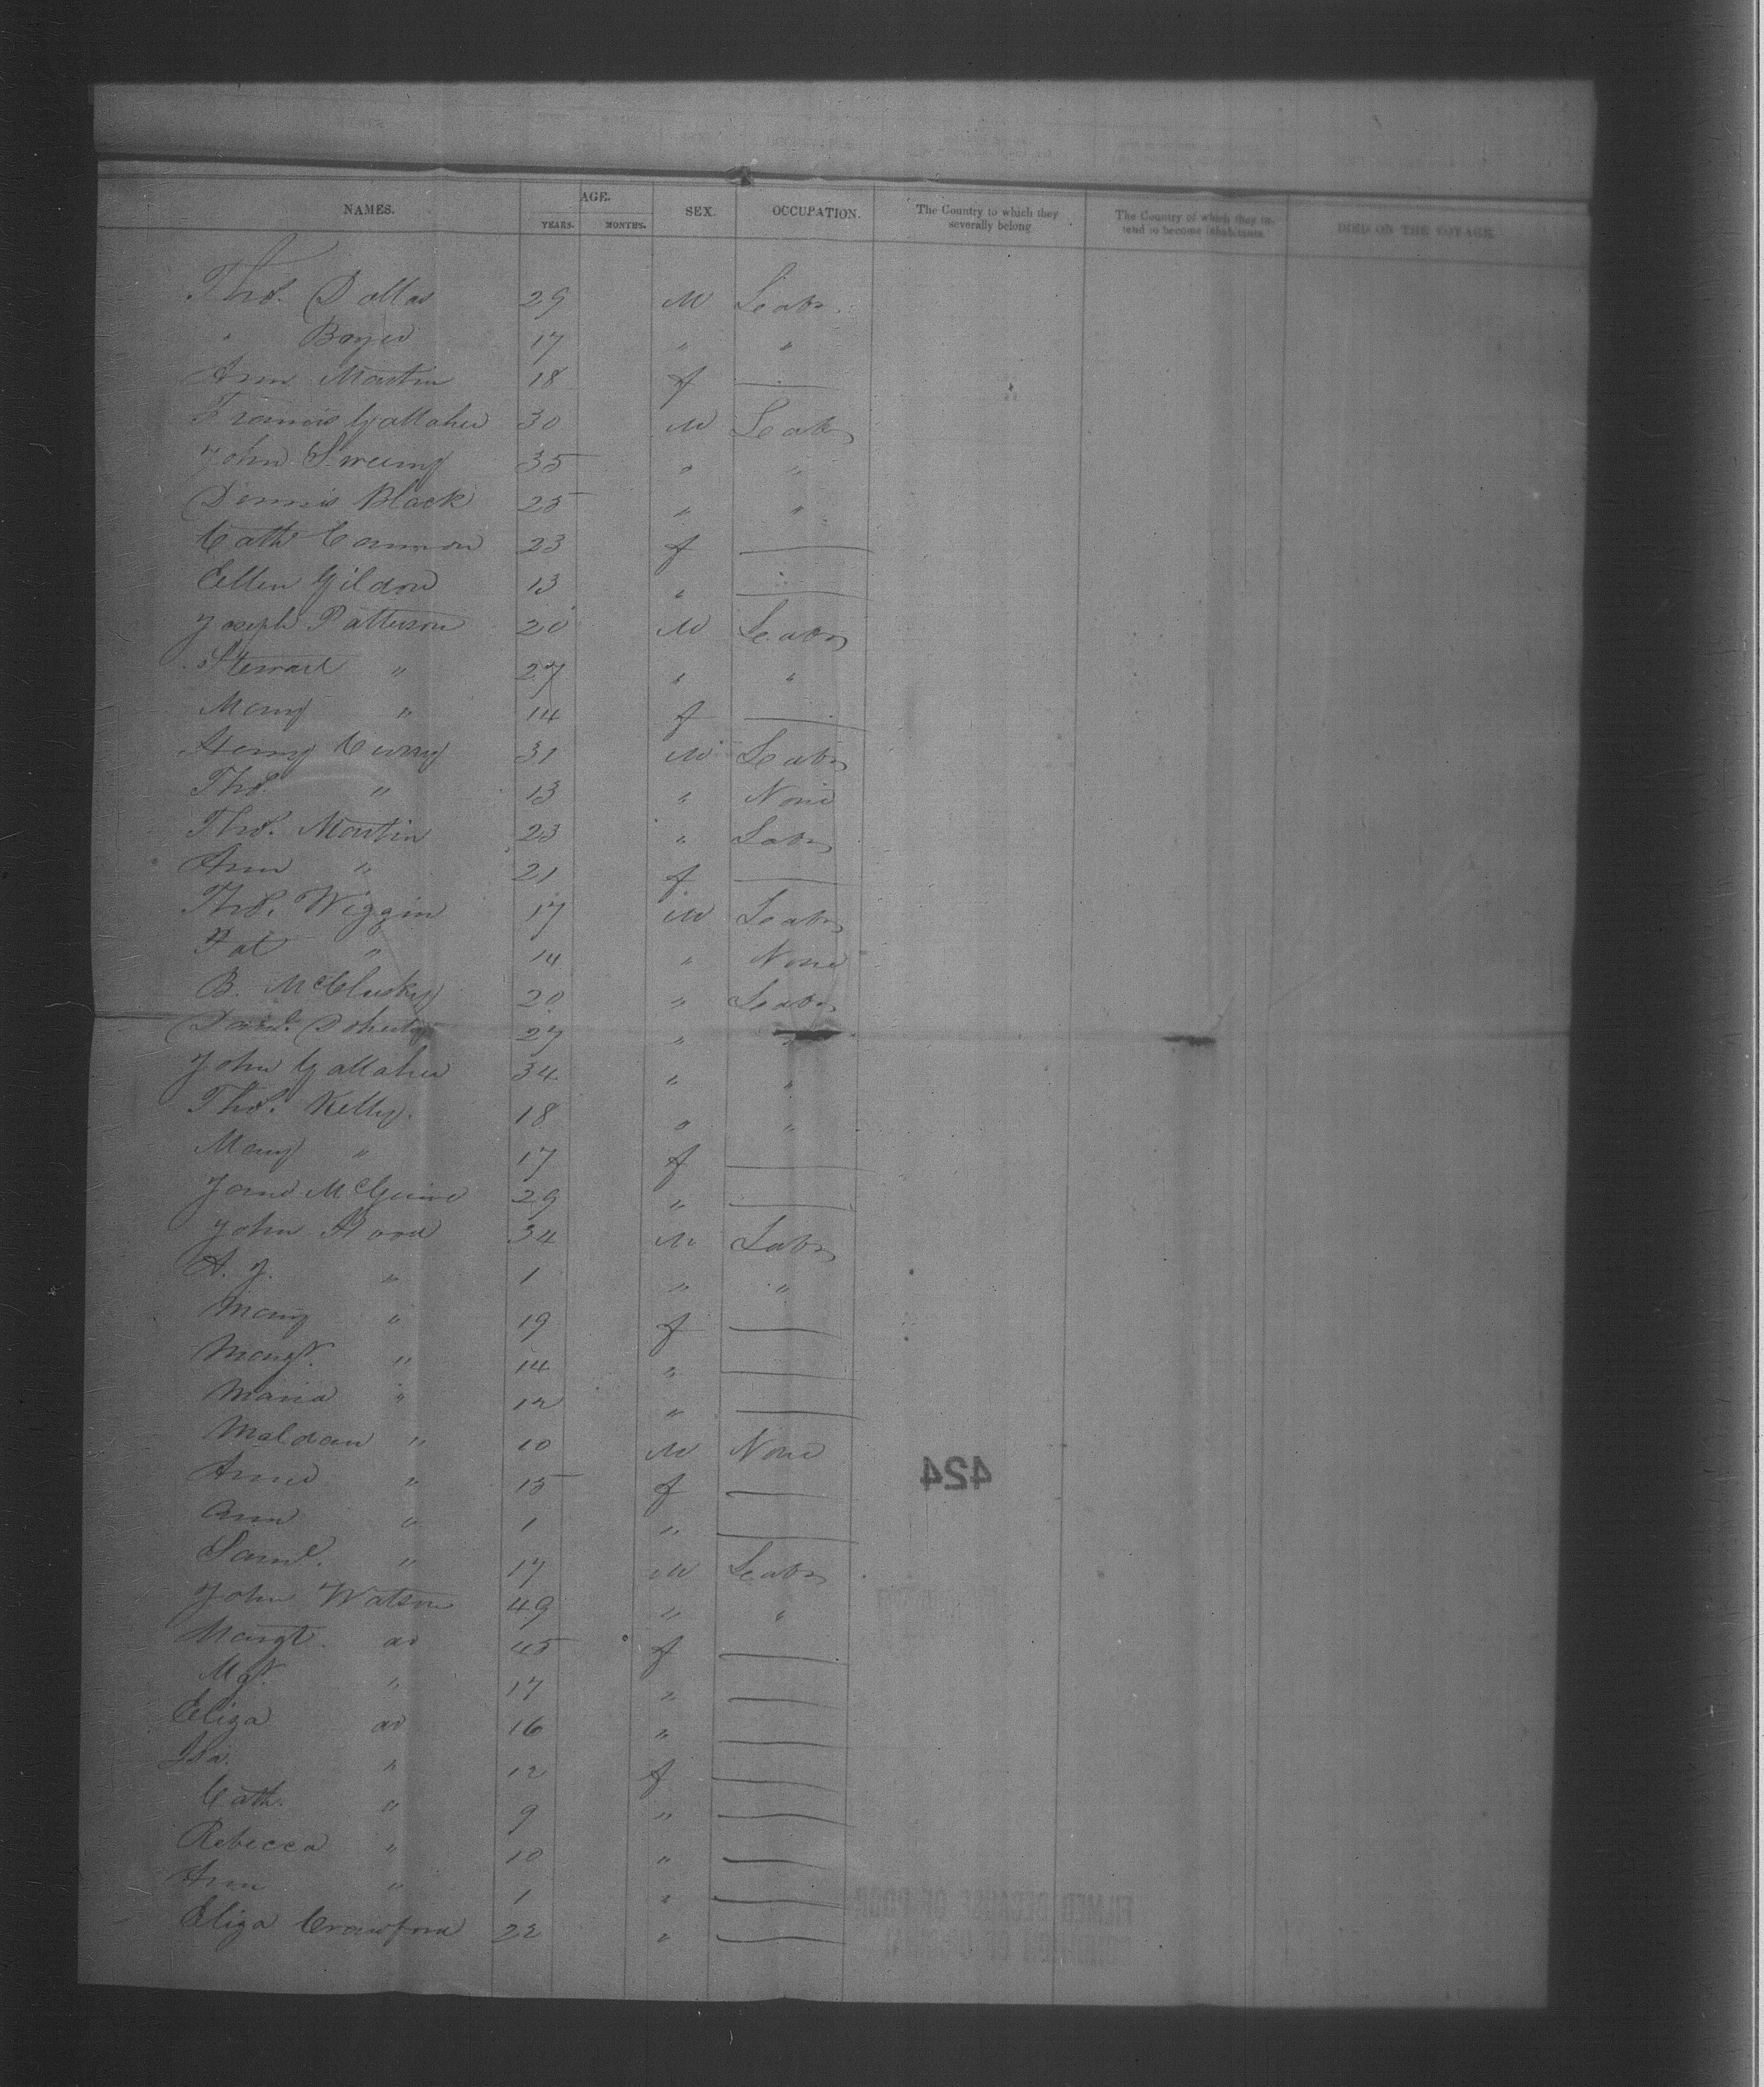 NAMES. AGE. YEARS. MONTHS. SEX. OCCUPATION. The Country to which they severally belong The Country of which they intend to become inhabitants. DIED ON THE VOYAGE.
Thos. Dallas 29 M Labr.
" 17 " "
Ann Martin 18 f —
Francis Gallaher 30 M Labr
John Sweeny 35 " "
Dennis Black 25 " "
Cath Cannon 23 f —
Ellen Gildon 13 " —
Joseph Patterson 20 M Labr
Stewart " 27 " "
Mary " 14 f —
Henry Curry 31 M Labr
Thos. " 13 " None
Thos. Martin 23 " Labr
Ann " 21 f —
Thos. Wiggin 17 M Labr
Pat " 14 " None
B. McClusky 20 " Labr
Danl. Doherty 27 " "
John Gallaher 34 " "
Thos. Kelly. 18 " "
Mary " 17 f —
Jane McGuire 29 " —
John 34 M Labr
A. J. " 1 " "
Mary " 19 f —
Margt. " 14 " —
Maria " 12 " —
" 10 M None
Anne " 15 f —
Ann " 1 " —
Saml. " 17 M Labr
John Watson 49 " "
Margt. do 45 f —
" 17 " —
Eliza do 16 " —
Isa. " 12 f —
Cath. " 9 " —
Rebecca " 10 " —
Ann " 1 " —
Eliza Crawford 22 " —
424
FILMED BECAUSE OF POOR
CONDITION OF ORIGINAL